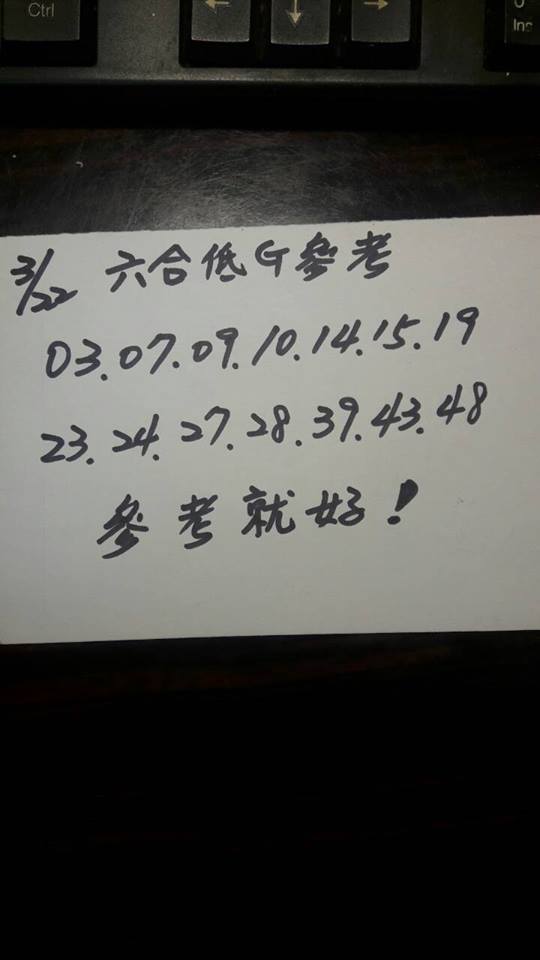 Ctrl
← ↓ →
0
Ins
3/22 六合低G參考
03.07.09.10.14.15.19
23.24.27.28.39.43.48
參考就好!